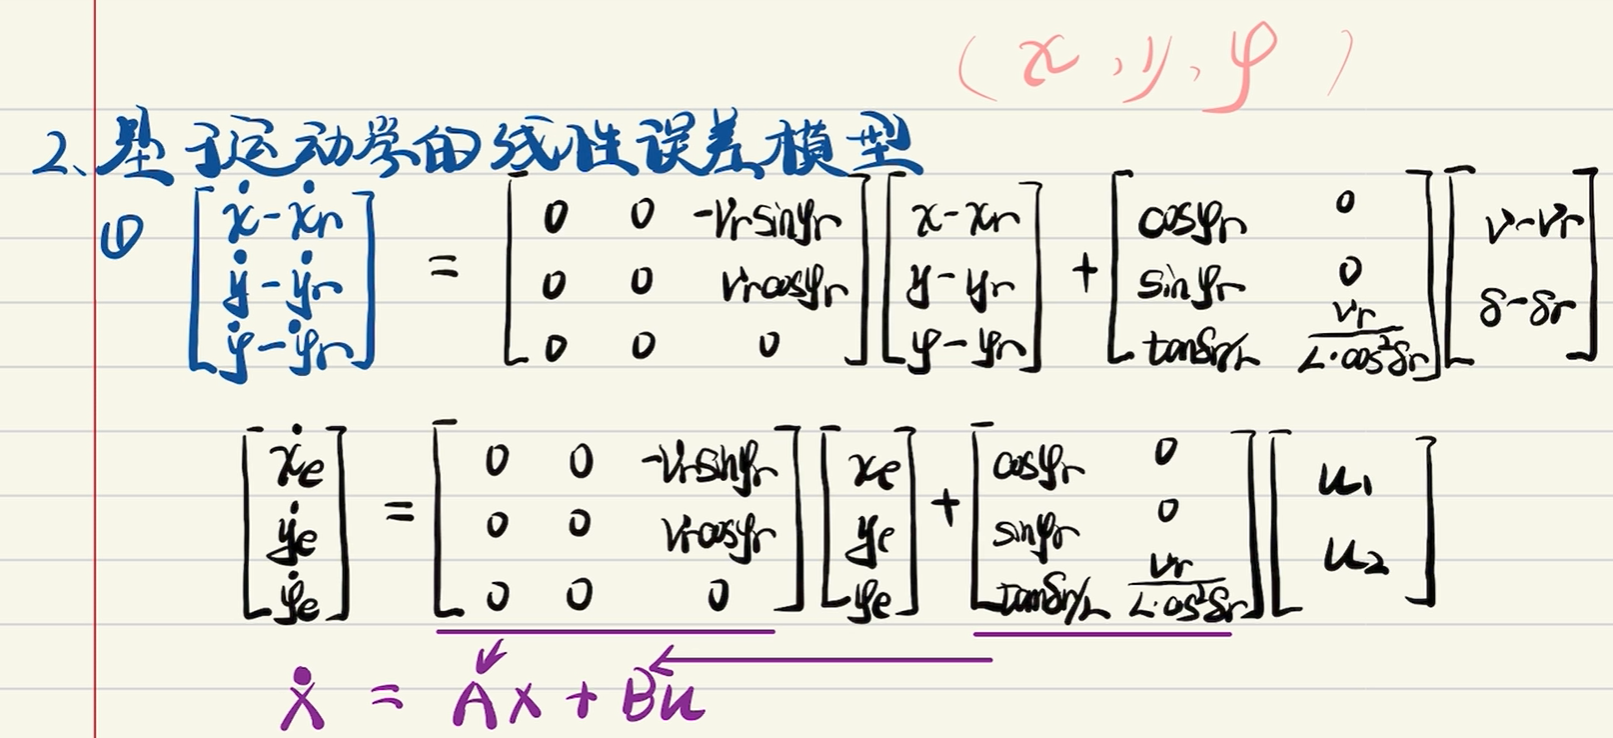 (x, y, φ)
2、基于运动学的线性误差模型
① [ẋ-ẋr; ẏ-ẏr; φ̇-φ̇r] = [0 0 -vr sinφr; 0 0 vr cosφr; 0 0 0] [x-xr; y-yr; φ-φr] + [cosφr 0; sinφr 0; tanδr/L vr/(L·cos²δr)] [v-vr; δ-δr]
[ẋe; ẏe; φ̇e] = [0 0 -vr sinφr; 0 0 vr cosφr; 0 0 0] [xe; ye; φe] + [cosφr 0; sinφr 0; tanδr/L vr/(L·cos²δr)] [u₁; u₂]
Ẋ = AX + Bu